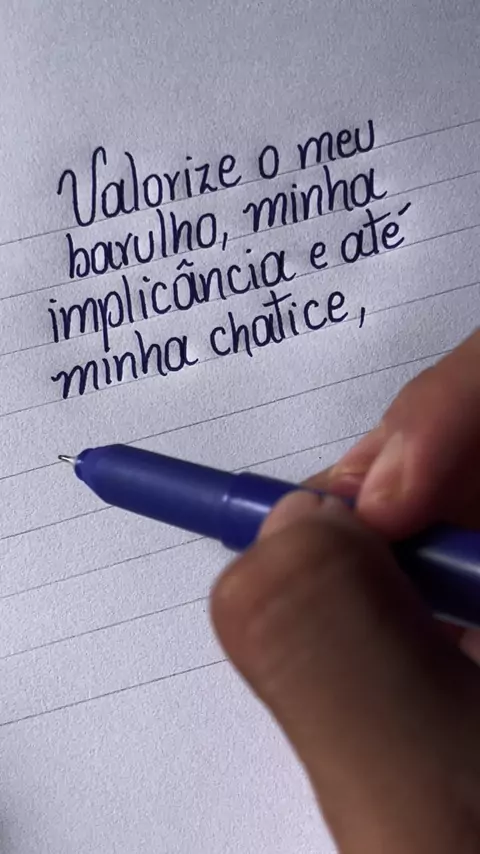 Valorize o meu
barulho, minha
implicância e até
minha chatice,